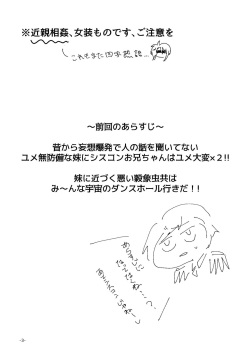 ※近親相姦、女装ものです、ご注意を
これもまた四字熟語…
～前回のあらすじ～
昔から妄想爆発で人の話を聞いてない
ユメ無防備な妹にシスコンお兄ちゃんはユメ大変×2!!
妹に近づく悪い穀象虫共は
み～んな宇宙のダンスホール行きだ!!
-3-